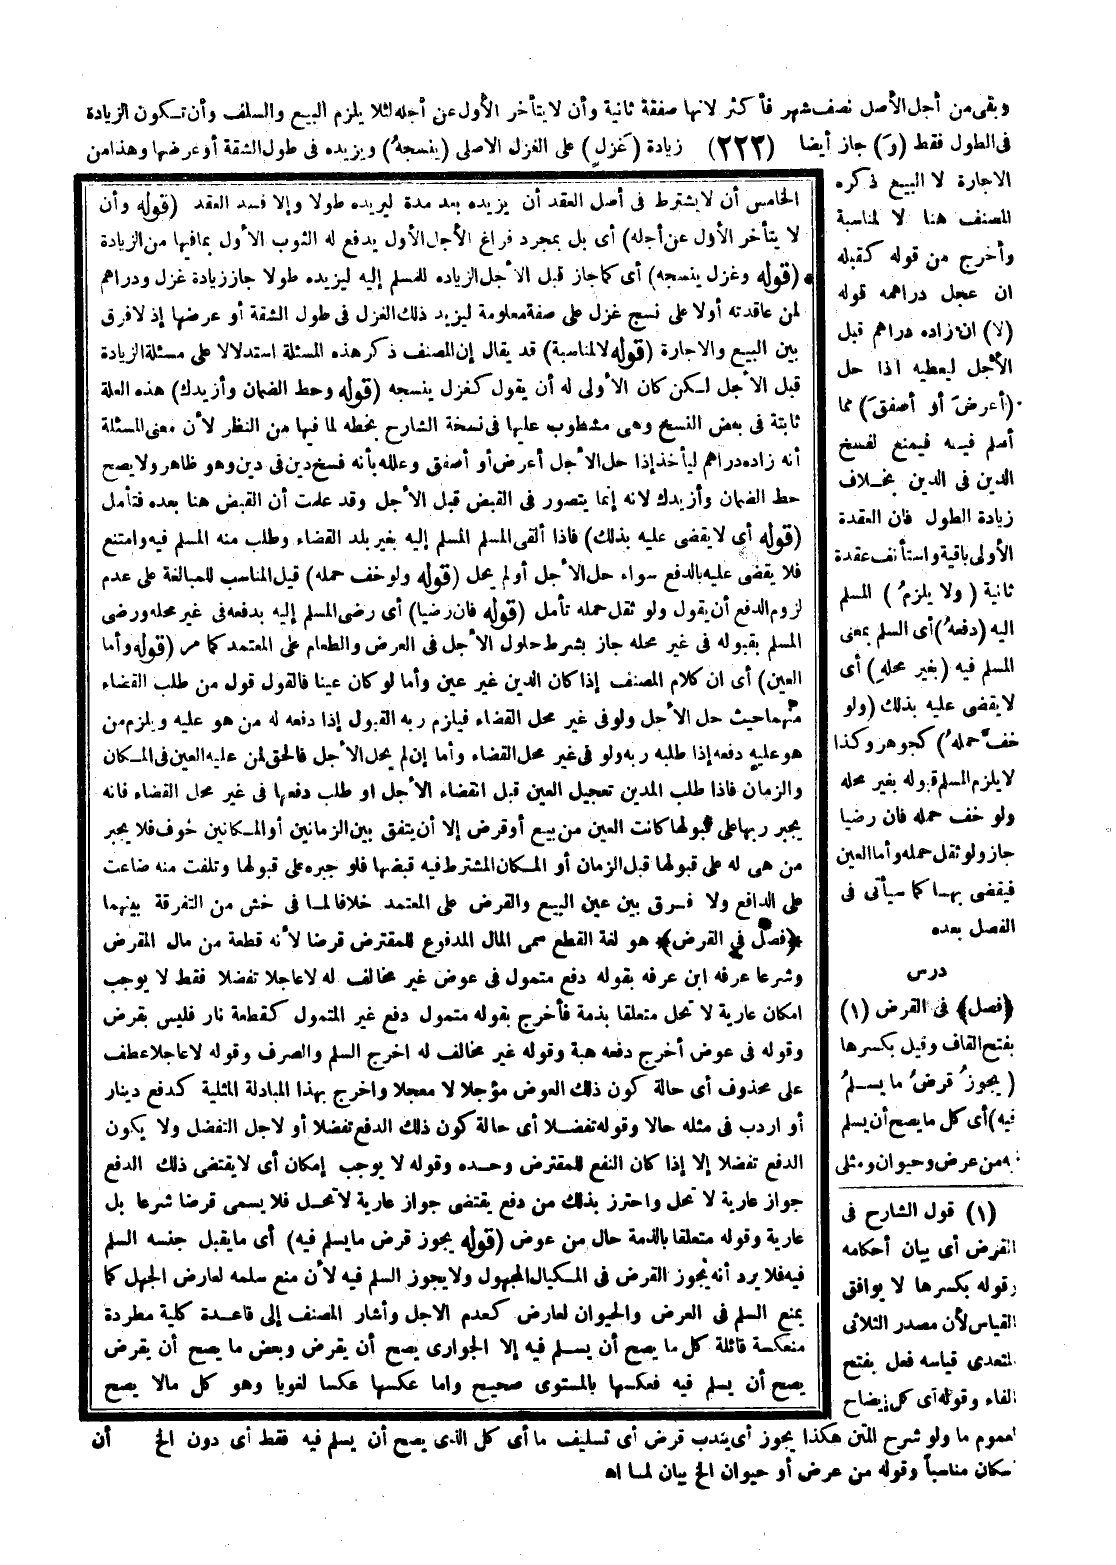 وبقى من أجل الأصل نصف شهر فأكثر لانها صفقة ثانية وأن لا يتأخر الأول عن أجله لئلا يلزم البيع والسلف وأن تكون الزيادة
فى الطول فقط (وَ) جاز أيضا (٢٢٣) زيادة (غَزلٍ) على الغزل الاصلى (ينسجهُ) ويزيده فى طول الشقة أو عرضها وهذا من
الاجارة لا البيع ذكره
المصنف هنا لا لمناسبة
وأخرج من قوله كقبله
ان عجل دراهمه قوله
(لا) ان زاده دراهم قبل
الأجل ليعطيه اذا حل
(أعرضَ أو أصفقَ) مما
أسلم فيه فيمنع لفسخ
الدين فى الدين بخلاف
زيادة الطول فان العقدة
الأولى باقية واستأنف عقدة
ثانية (ولا يلزمُ) المسلم
اليه (دفعهُ) أى السلم بمعنى
المسلم فيه (بغير محلهِ) أى
لا يقضى عليه بذلك (ولو
خفَّ حملهُ) كجوهر وكذا
لا يلزم المسلم قبوله بغير محله
ولو خف حمله فان رضيا
جاز ولو ثقل حمله وأما العين
فيقضى بها كما سيأتى فى
الفصل بعده
درس
﴿فصل﴾ فى القرض (١)
بفتح القاف وقيل بكسرها
(يجوزُ قرضُ ما يسلمُ
فيه) أى كل ما يصح أن يسلم
فيه من عرض وحيوان ومثلى
الخامس أن لا يشترط فى أصل العقد أن يزيده بعد مدة ليزيده طولا وإلا فسد العقد (قوله وأن
لا يتأخر الأول عن أجله) أى بل بمجرد فراغ الأجل الأول يدفع له الثوب الاول بما فيها من الزيادة
(قوله وغزل ينسجه) أى كما جاز قبل الأجل الزياده للمسلم إليه ليزيده طولا جاز زيادة غزل ودراهم
لمن عاقدته أولا على نسج غزل على صفة معلومة ليزيد ذلك الغزل فى طول الشقة أو عرضها إذ لا فرق
بين البيع والاجارة (قوله لا لمناسبة) قد يقال إن المصنف ذكر هذه المسئلة استدلالا على مسئلة الزيادة
قبل الأجل لكن كان الأولى له أن يقول كغزل ينسجه (قوله وحط الضمان وأزيدك) هذه العلة
ثابتة فى بعض النسخ وهى مشطوب عليها فى نسخة الشارح بخطه لما فيها من النظر لأن معنى المسئلة
أنه زاده دراهم ليأخذ إذا حل الأجل أعرض أو أصفق وعلله بأنه فسخ دين فى دين وهو ظاهر ولا يصح
حط الضمان وأزيدك لانه إنما يتصور فى القبض قبل الأجل وقد علمت أن القبض هنا بعده فتأمل
(قوله أى لا يقضى عليه بذلك) فاذا ألقى المسلم المسلم إليه بغير بلد القضاء وطلب منه المسلم فيه وامتنع
فلا يقضى عليه بالدفع سواء حل الأجل أو لم يحل (قوله ولو خف حمله) قيل المناسب للمبالغة على عدم
لزوم الدفع أن يقول ولو ثقل حمله تأمل (قوله فان رضيا) أى رضى المسلم إليه بدفعه فى غير محله ورضى
المسلم بقبوله فى غير محله جاز بشرط حلول الأجل فى العرض والطعام على المعتمد كما مر (قوله وأما
العين) أى ان كلام المصنف إذا كان الدين غير عين وأما لو كان عينا فالقول قول من طلب القضاء
منهما حيث حل الأجل ولو فى غير محل القضاء فيلزم ربه القبول إذا دفعه له من هو عليه ويلزم من
هو عليه دفعه إذا طلبه ربه ولو فى غير محل القضاء وأما إن لم يحل الأجل فالحق لمن عليه العين فى المكان
والزمان فاذا طلب المدين تعجيل العين قبل انقضاء الأجل او طلب دفعها فى غير محل القضاء فانه
يجبر ربها على قبولها كانت العين من بيع أو قرض إلا أن يتفق بين الزمانين أو المكانين خوف فلا يجبر
من هى له على قبولها قبل الزمان أو المكان المشترط فيه قبضها فلو جبره على قبولها وتلفت منه ضاعت
على الدافع ولا فرق بين عين البيع والقرض على المعتمد خلافا لما فى خش من التفرقة بينهما
﴿فصل فى القرض﴾ هو لغة القطع سمى المال المدفوع للمقترض قرضا لأنه قطعة من مال المقرض
وشرعا عرفه ابن عرفه بقوله دفع متمول فى عوض غير مخالف له لا عاجلا تفضلا فقط لا يوجب
امكان عارية لا تحل متعلقا بذمة فأخرج بقوله متمول دفع غير المتمول كقطعة نار فليس بقرض
وقوله فى عوض أخرج دفعه هبة وقوله غير مخالف له اخرج السلم والصرف وقوله لا عاجلا عطف
على محذوف أى حالة كون ذلك العوض مؤجلا لا معجلا واخرج بهذا المبادلة المثلية كدفع دينار
أو اردب فى مثله حالا وقوله تفضلا أى حالة كون ذلك الدفع تفضلا أو لاجل التفضل ولا يكون
الدفع تفضلا إلا إذا كان النفع للمقترض وحده وقوله لا يوجب إمكان أى لا يقتضى ذلك الدفع
جواز عارية لا تحل واحترز بذلك من دفع يقتضى جواز عارية لا تحل فلا يسمى قرضا شرعا بل
عارية وقوله متعلقا بالذمة حال من عوض (قوله يجوز قرض ما يسلم فيه) أى ما يقبل جنسه السلم
فيه فلا يرد أنه يجوز القرض فى المكيال المجهول ولا يجوز السلم فيه لأن منع سلمه لعارض الجهل كما
يمنع السلم فى العرض والحيوان لعارض كعدم الاجل وأشار المصنف إلى قاعدة كلية مطردة
منعكسة قائلة كل ما يصح أن يسلم فيه إلا الجوارى يصح أن يقرض وبعض ما يصح أن يقرض
يصح أن يسلم فيه فعكسها بالمستوى صحيح واما عكسها عكسا لغويا وهو كل مالا يصح
(١) قول الشارح فى
القرض أى بيان أحكامه
وقوله بكسرها لا يوافق
القياس لأن مصدر الثلاثى
المتعدى قياسه فعل بفتح
الفاء وقوله أى كل إيضاح
لعموم ما ولو شرح المتن هكذا يجوز أى يندب قرض أى تسليف ما أى كل الذى يصح أن يسلم فيه فقط أى دون الخ أن
لكان مناسباً وقوله من عرض أو حيوان الخ بيان لما اهـ